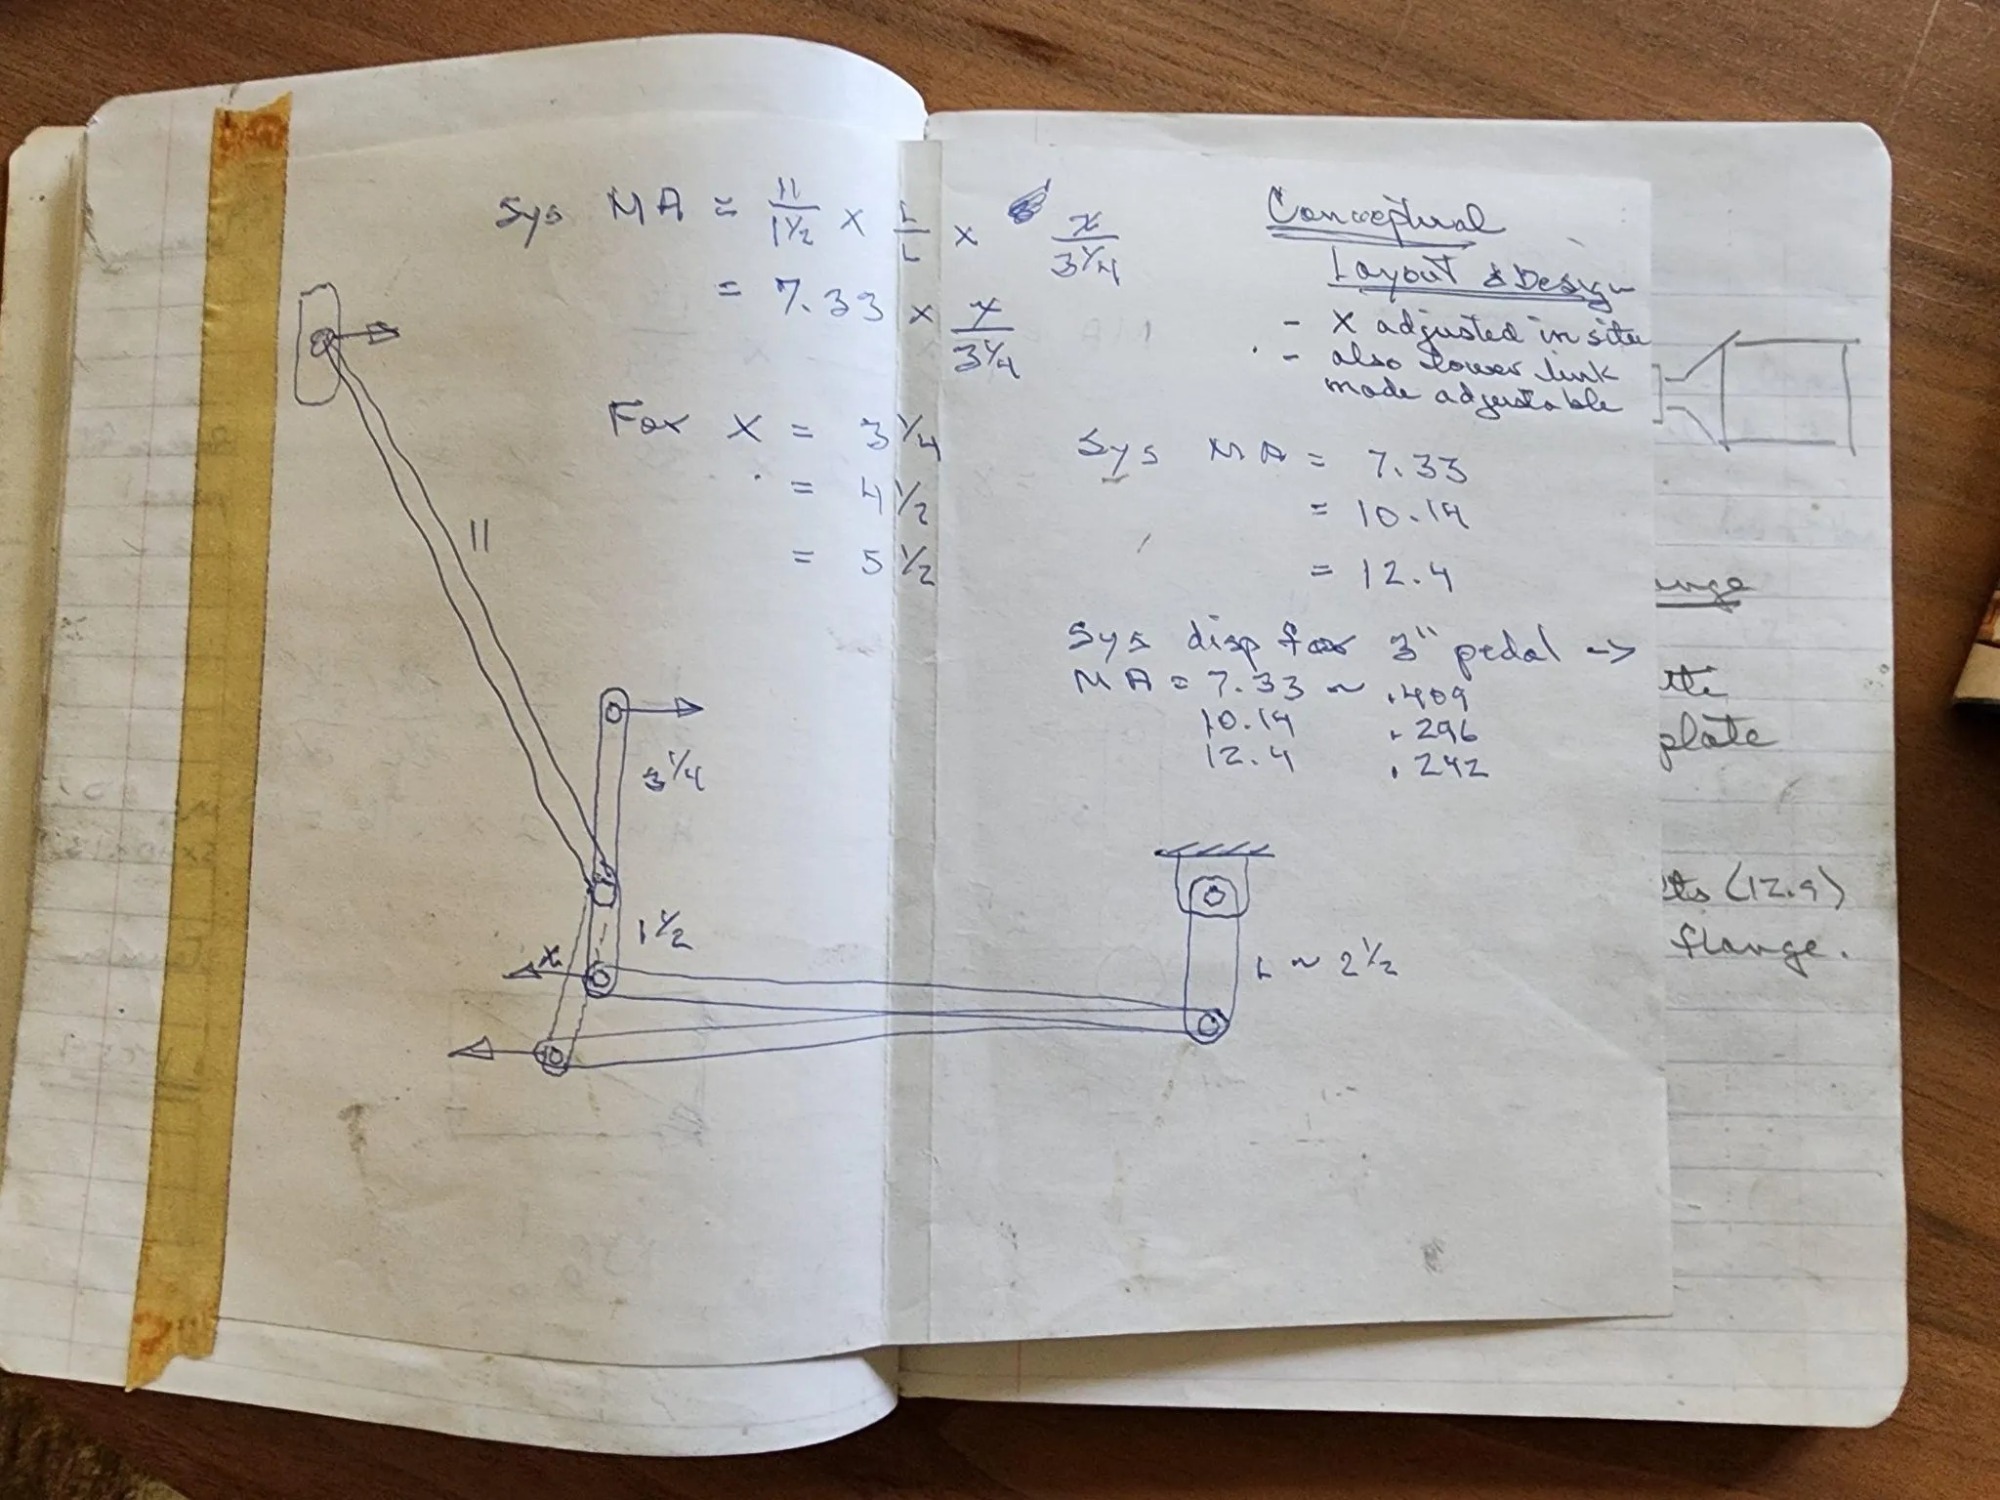 Sys MA = 11/1½ × L/L × x/3¼
= 7.33 × x/3¼
For X = 3¼
= 4½
= 5½
11
3¼
1½
x
Conceptual
Layout & Design
- X adjusted in situ
- also lower link
made adjustable
Sys MA = 7.33
= 10.14
= 12.4
Sys disp for 3" pedal →
MA = 7.33 ~ .409
10.14 .296
12.4 .242
L ~ 2½
plate
(12.9)
flange.